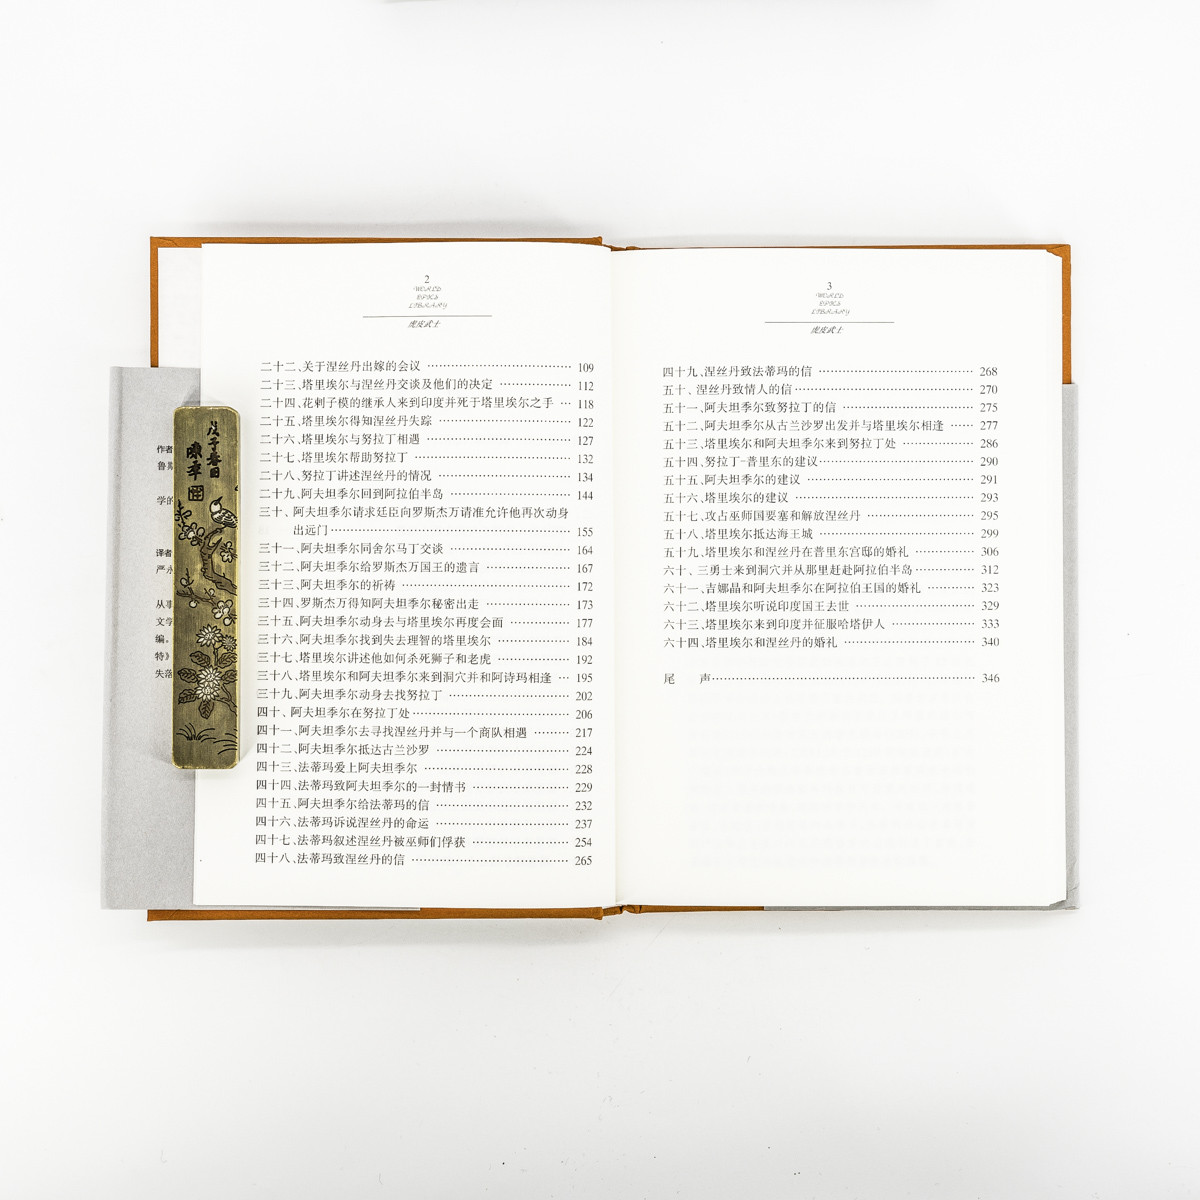 2
WORLD
EPICS
LIBRARY
虎皮武士
二十二、关于涅丝丹出嫁的会议 ………………………… 109
二十三、塔里埃尔与涅丝丹交谈及他们的决定 ………… 112
二十四、花剌子模的继承人来到印度并死于塔里埃尔之手 … 118
二十五、塔里埃尔得知涅丝丹失踪 ……………………… 122
二十六、塔里埃尔与努拉丁相遇 ………………………… 127
二十七、塔里埃尔帮助努拉丁 …………………………… 132
二十八、努拉丁讲述涅丝丹的情况 ……………………… 134
二十九、阿夫坦季尔回到阿拉伯半岛 …………………… 144
三十、阿夫坦季尔请求廷臣向罗斯杰万请准允许他再次动身
出远门 ………………………………………… 155
三十一、阿夫坦季尔同舍尔马丁交谈 …………………… 164
三十二、阿夫坦季尔给罗斯杰万国王的遗言 …………… 167
三十三、阿夫坦季尔的祈祷 ……………………………… 172
三十四、罗斯杰万得知阿夫坦季尔秘密出走 …………… 173
三十五、阿夫坦季尔动身去与塔里埃尔再度会面 ……… 177
三十六、阿夫坦季尔找到失去理智的塔里埃尔 ………… 184
三十七、塔里埃尔讲述他如何杀死狮子和老虎 ………… 192
三十八、塔里埃尔和阿夫坦季尔来到洞穴并和阿诗玛相逢 … 195
三十九、阿夫坦季尔动身去找努拉丁 …………………… 202
四十、阿夫坦季尔在努拉丁处 …………………………… 206
四十一、阿夫坦季尔去寻找涅丝丹并与一个商队相遇 …… 217
四十二、阿夫坦季尔抵达古兰沙罗 ……………………… 224
四十三、法蒂玛爱上阿夫坦季尔 ………………………… 228
四十四、法蒂玛致阿夫坦季尔的一封情书 ……………… 229
四十五、阿夫坦季尔给法蒂玛的信 ……………………… 232
四十六、法蒂玛诉说涅丝丹的命运 ……………………… 237
四十七、法蒂玛叙述涅丝丹被巫师们俘获 ……………… 254
四十八、法蒂玛致涅丝丹的信 …………………………… 265
3
WORLD
EPICS
LIBRARY
虎皮武士
四十九、涅丝丹致法蒂玛的信 …………………………… 268
五十、涅丝丹致情人的信 ………………………………… 270
五十一、阿夫坦季尔致努拉丁的信 ……………………… 275
五十二、阿夫坦季尔从古兰沙罗出发并与塔里埃尔相逢 … 277
五十三、塔里埃尔和阿夫坦季尔来到努拉丁处 ………… 286
五十四、努拉丁-普里东的建议 …………………………… 290
五十五、阿夫坦季尔的建议 ……………………………… 291
五十六、塔里埃尔的建议 ………………………………… 293
五十七、攻占巫师国要塞和解放涅丝丹 ………………… 295
五十八、塔里埃尔抵达海王城 …………………………… 299
五十九、塔里埃尔和涅丝丹在普里东宫邸的婚礼 ……… 306
六十、三勇士来到洞穴并从那里赶赴阿拉伯半岛 ……… 312
六十一、吉娜晶和阿夫坦季尔在阿拉伯王国的婚礼 …… 323
六十二、塔里埃尔听说印度国王去世 …………………… 329
六十三、塔里埃尔来到印度并征服哈塔伊人 …………… 333
六十四、塔里埃尔和涅丝丹的婚礼 ……………………… 340
尾 声 ……………………………………………… 346
作者
鲁斯
学的
译者
严永
从事
文学
编。
特》
失落
戊子春日